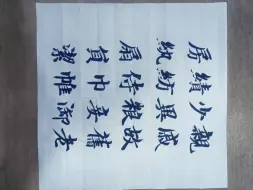 親戚故舊老
少異粮妾御
績紡侍巾帷
房紈扇員潔